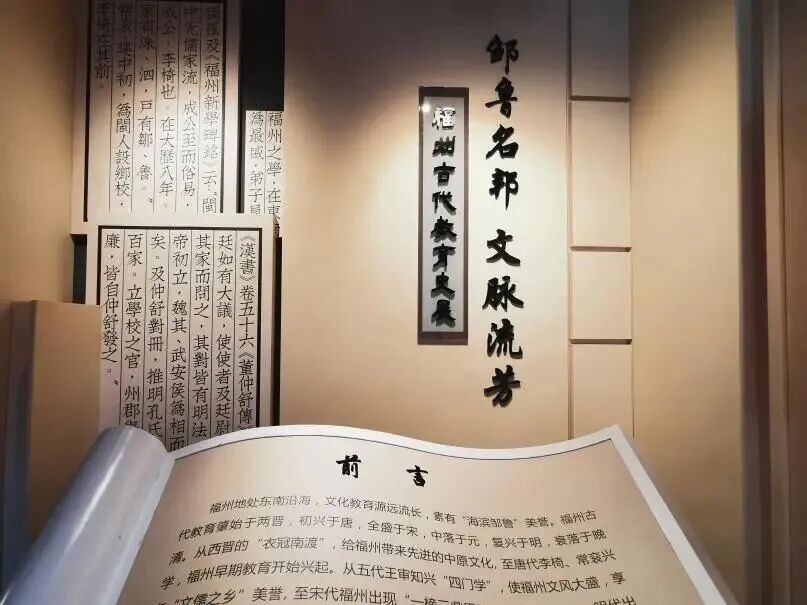 邹鲁名邦 文脉流芳
福州古代教育史展
福州之學，在東
為最盛，弟子員
孫及《福州新學碑銘》云：“閩
中无儒家流，成公至而俗易，
成公，李椅也。在大歷八年。
家有洙、泗，戶有鄒、魯。”
常袞，建中初，為閩人設鄉校，
李椅在其前。
《漢書》卷五十六《董仲舒傳
廷如有大議，使使者及廷尉
其家而問之，其對皆有明法
帝初立，魏其、武安侯為相而
矣。及仲舒對冊，推明孔氏
百家。立學校之官，州郡舉
廉，皆自仲舒發之。”
前言
福州地处东南沿海，文化教育源远流长，素有“海滨邹鲁”美誉。福州古
代教育肇始于两晋，初兴于唐，全盛于宋，中落于元，复兴于明，衰落于晚
清。从西晋的“衣冠南渡”，给福州带来先进的中原文化，至唐代李椅、常衮兴
学，福州早期教育开始兴起。从五代王审知兴“四门学”，使福州文风大盛，享
“文儒之乡”美誉，至宋代福州出现“一榜